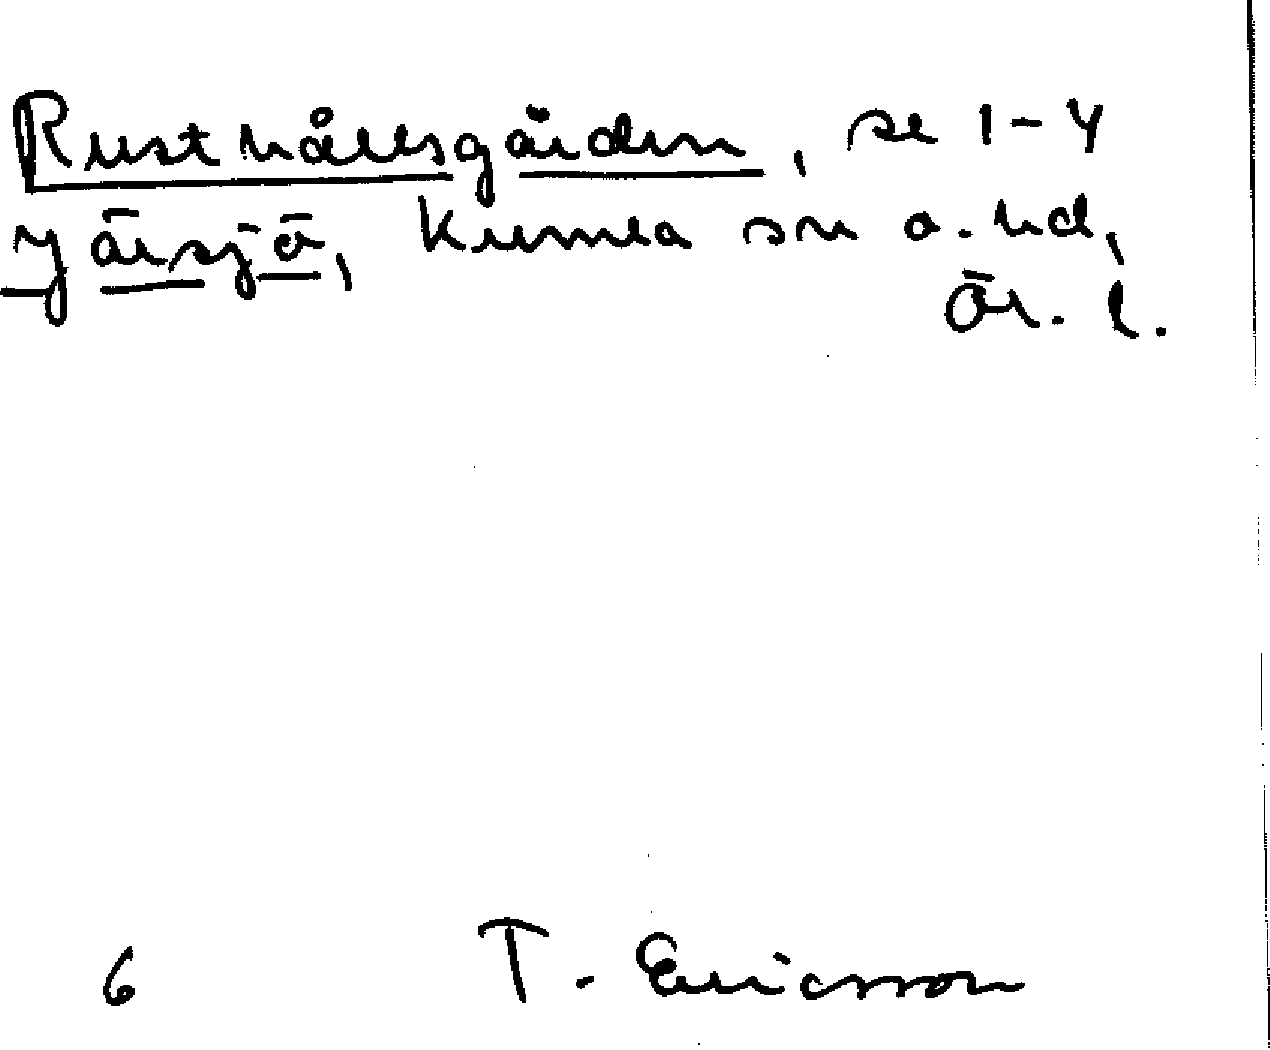 Rusthållsgården, se 1-4
Yärsjö, Kumla sn o. hd,
Ör. l.
6 T. Ericsson